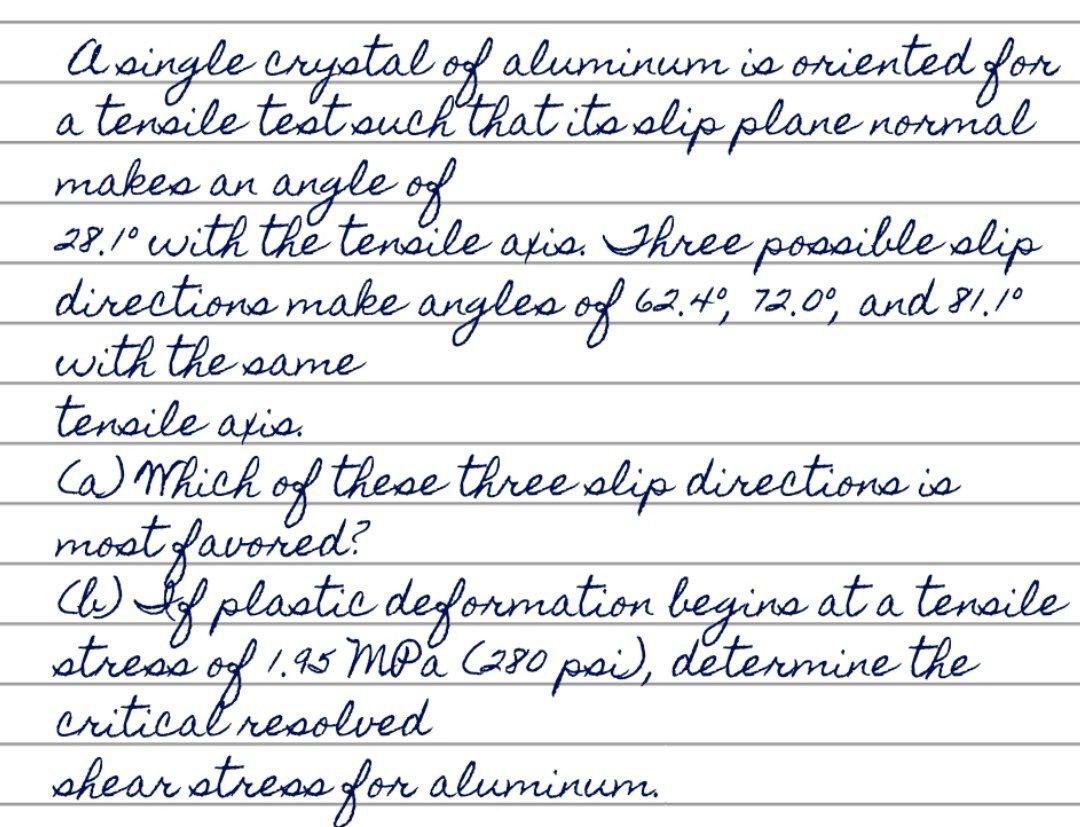 A single crystal of aluminum is oriented for
a tensile test such that its slip plane normal
makes an angle of
28.1° with the tensile axis. Three possible slip
directions make angles of 62.4°, 72.0°, and 81.1°
with the same
tensile axis.
(a) Which of these three slip directions is
most favored?
(b) If plastic deformation begins at a tensile
stress of 1.95 MPa (280 psi), determine the
critical resolved
shear stress for aluminum.